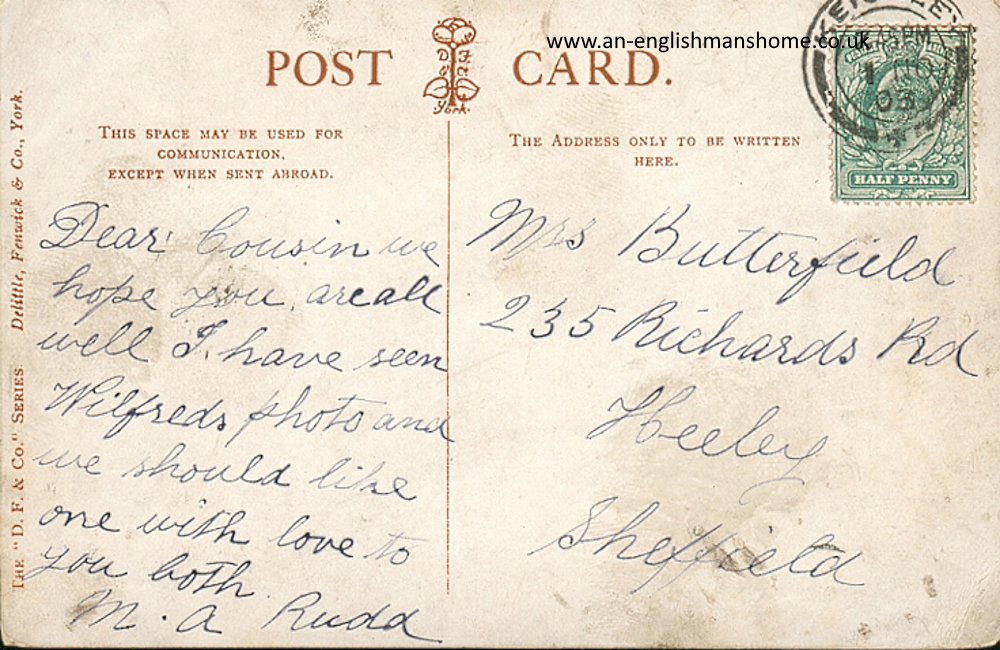 www.an-englishmanshome.co.uk
POST CARD.
D F & Co
York.
THIS SPACE MAY BE USED FOR
COMMUNICATION,
EXCEPT WHEN SENT ABROAD.
THE ADDRESS ONLY TO BE WRITTEN
HERE.
PM
1 NO
HALF PENNY
THE "D. F. & CO." SERIES Delittle, Fenwick & Co., York.
Dear Cousin we
hope you are all
well I have seen
Wilfreds photo and
we should like
one with love to
you both
M. A Rudd
Mrs Butterfield
235 Richards Rd
Heeley
Sheffield